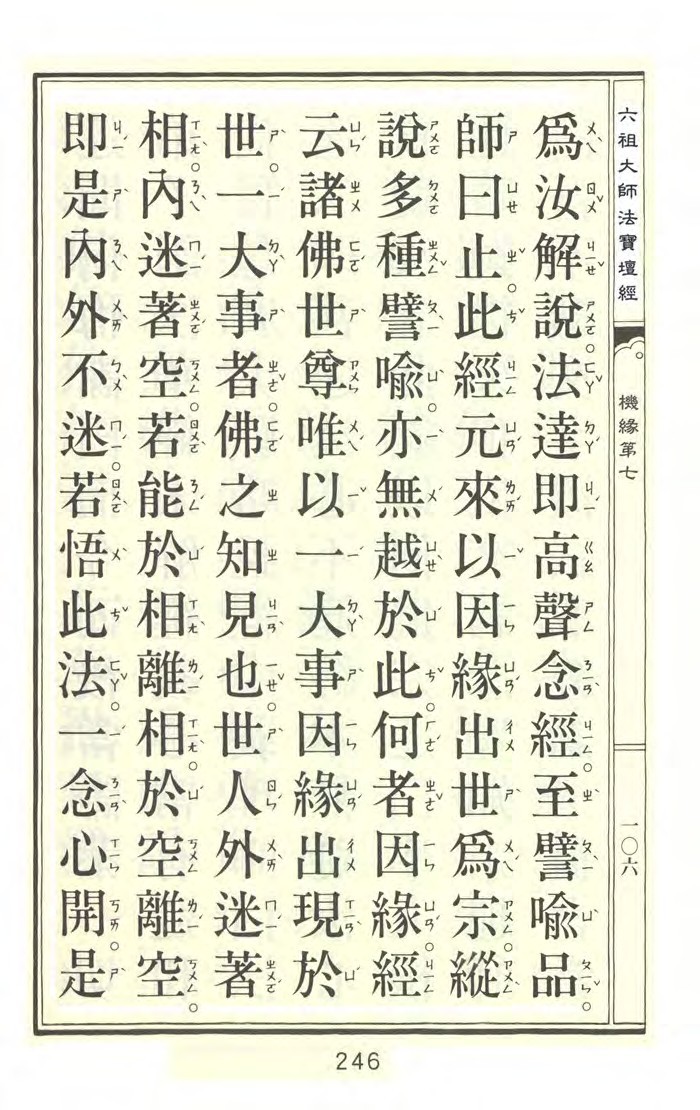 六祖大師法寶壇經
機緣第七
一〇六
為汝解說。法達即高聲念經。至譬喻品。
師曰。止。此經元來以因緣出世為宗。縱
說多種譬喻。亦無越於此。何者因緣。經
云。諸佛世尊。唯以一大事因緣出現於
世。一大事者。佛之知見也。世人外迷著
相。內迷著空。若能於相離相。於空離空。
即是內外不迷。若悟此法。一念心開。是
246